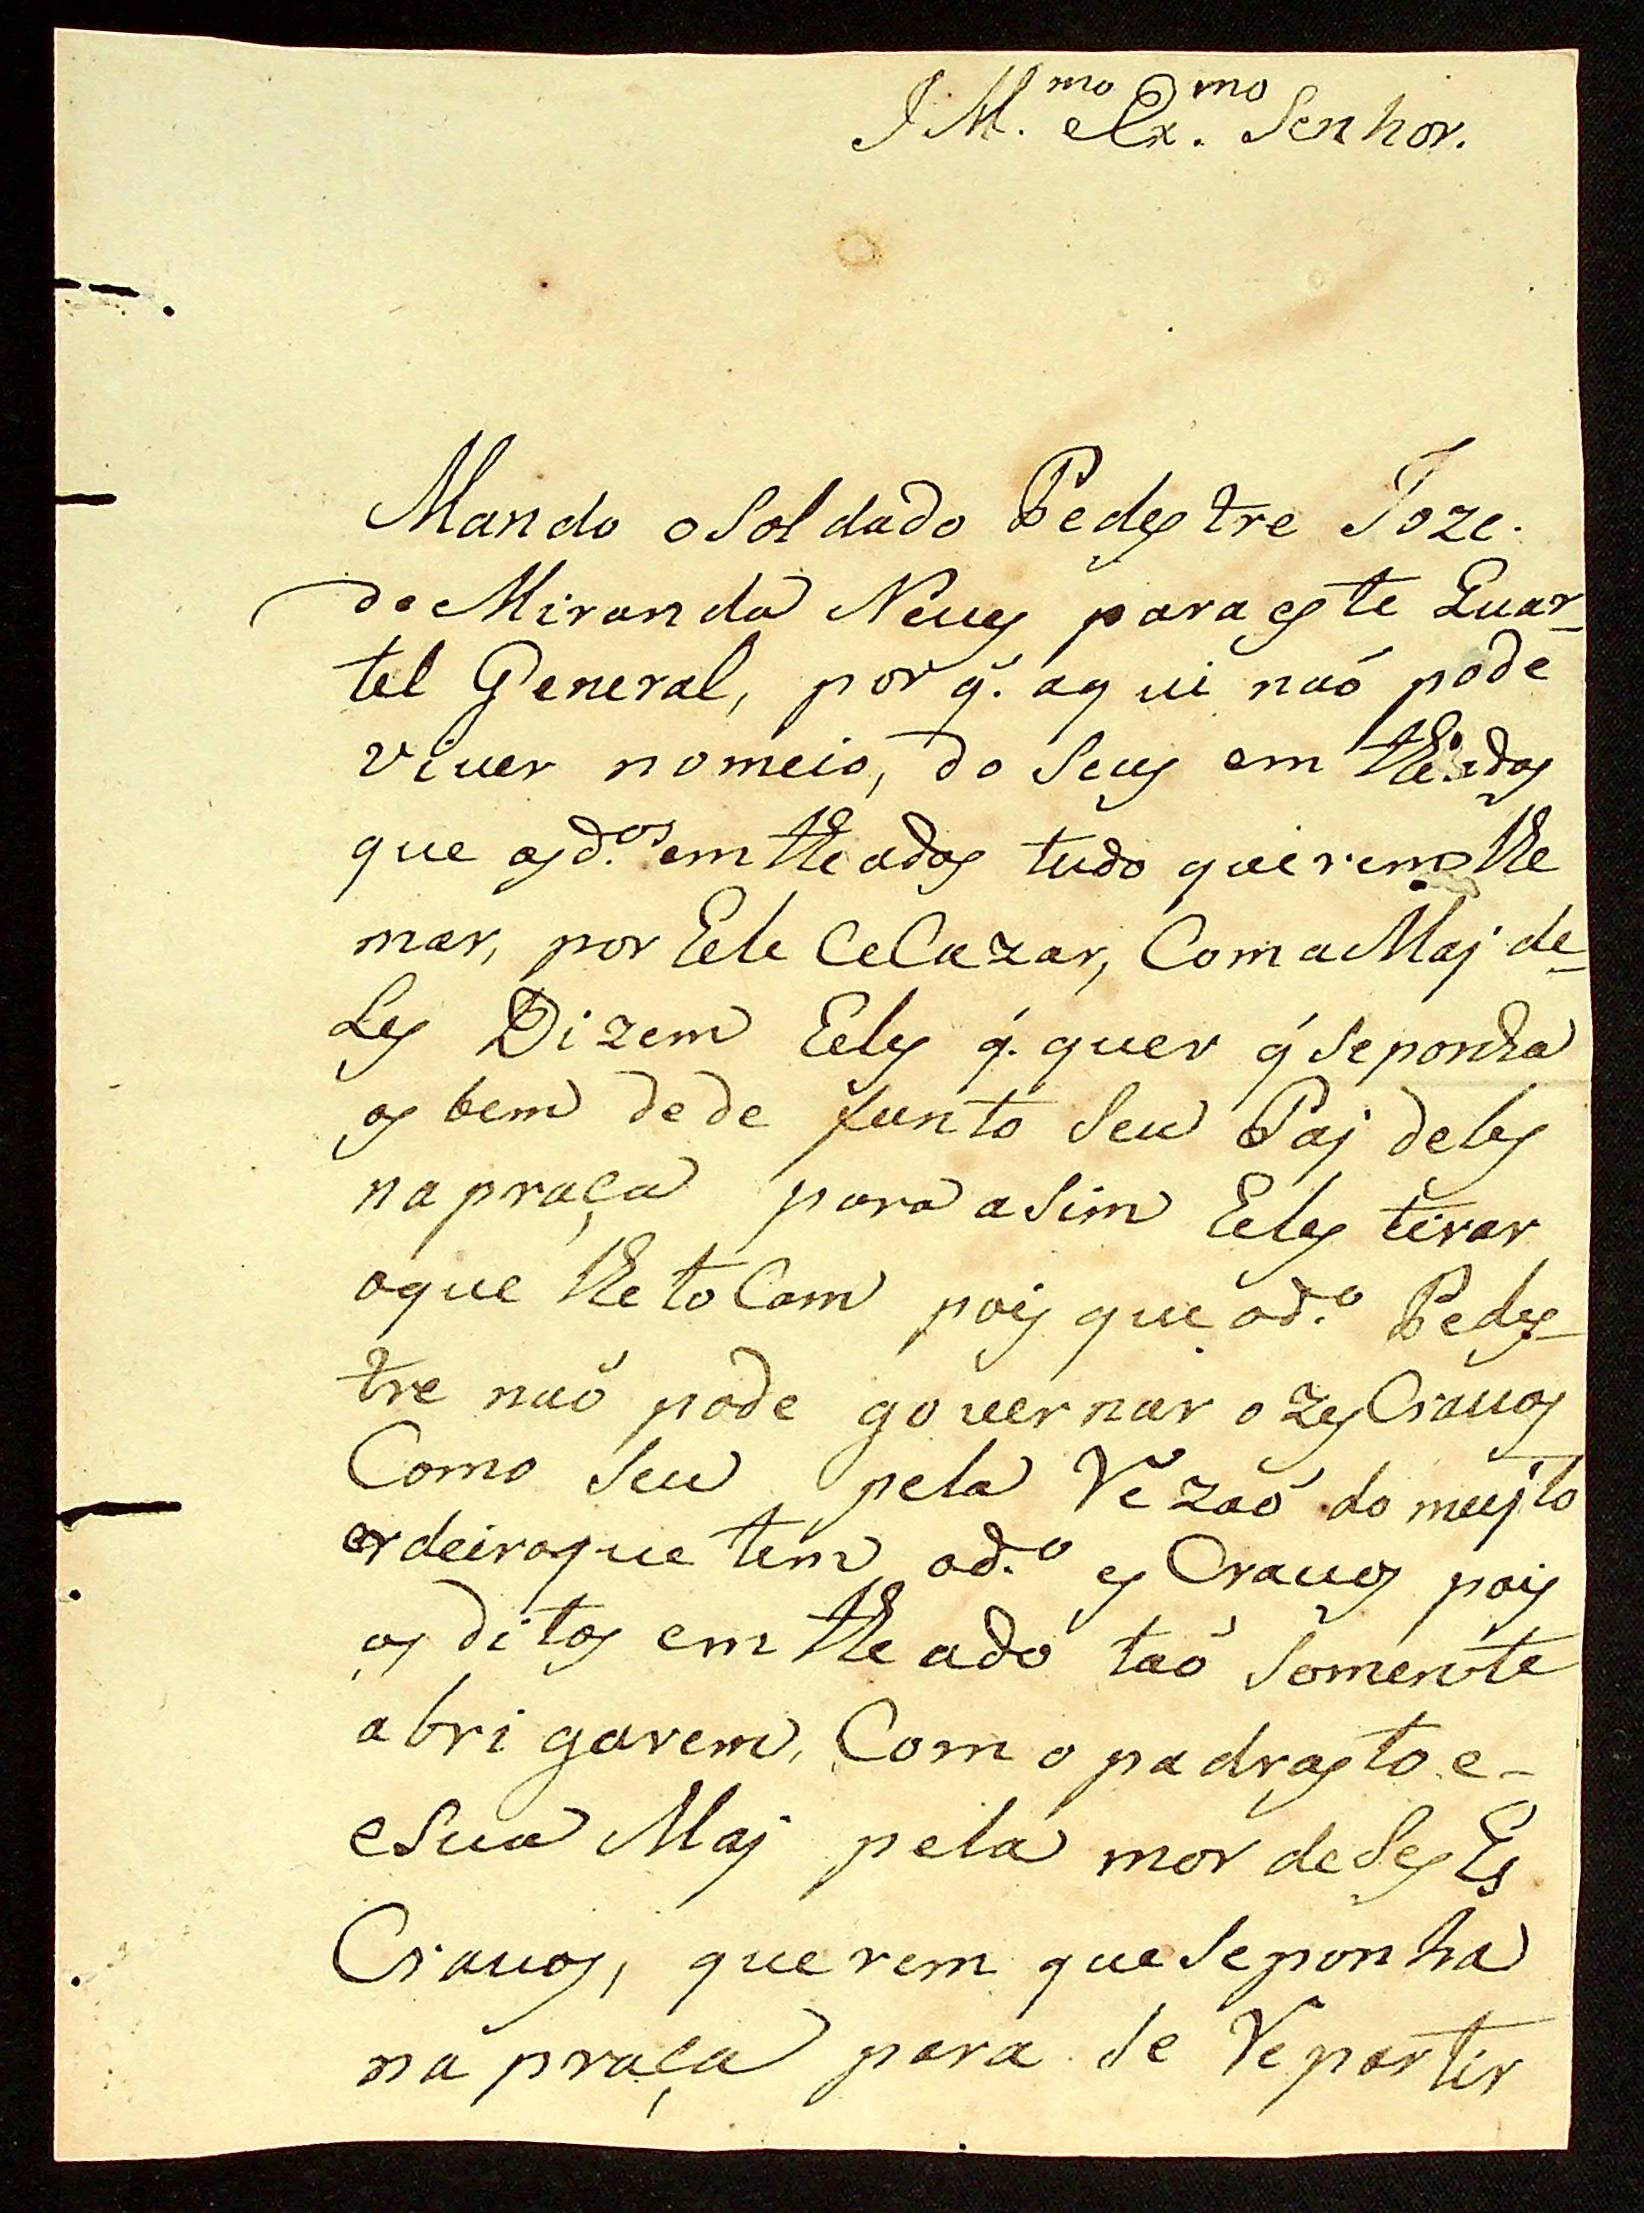 IM.mo e Ex.mo Senhor.
Mando o Soldado Pedestre Joze
de Miranda Neves para este Quar-
tel General, por q̃. aqui naó pode
viver no meio, do Seus em the ados
que os d.os em the ados tudo querem the
mar, por Eele Ce Cazar, Com a Maj de-
Les Dizem Eeles q̃. quer q̃ Se ponha
os bem de de funto Seu Paj deles
na praça para asim Eeles tirar
o que lhe toCam pois que o d.o Pedes-
tre naó pode governar o zes Cravos
Como Seu pela Rezaó do mujto
erdeiros que tem o d.o es Cravos pois
os ditos em the ado taó Somente
abrigarem, Com o padrasto e-
e Sua Maj pela mor de Ses Es
Cravos, querem que Se ponha
na praça para se Repartir